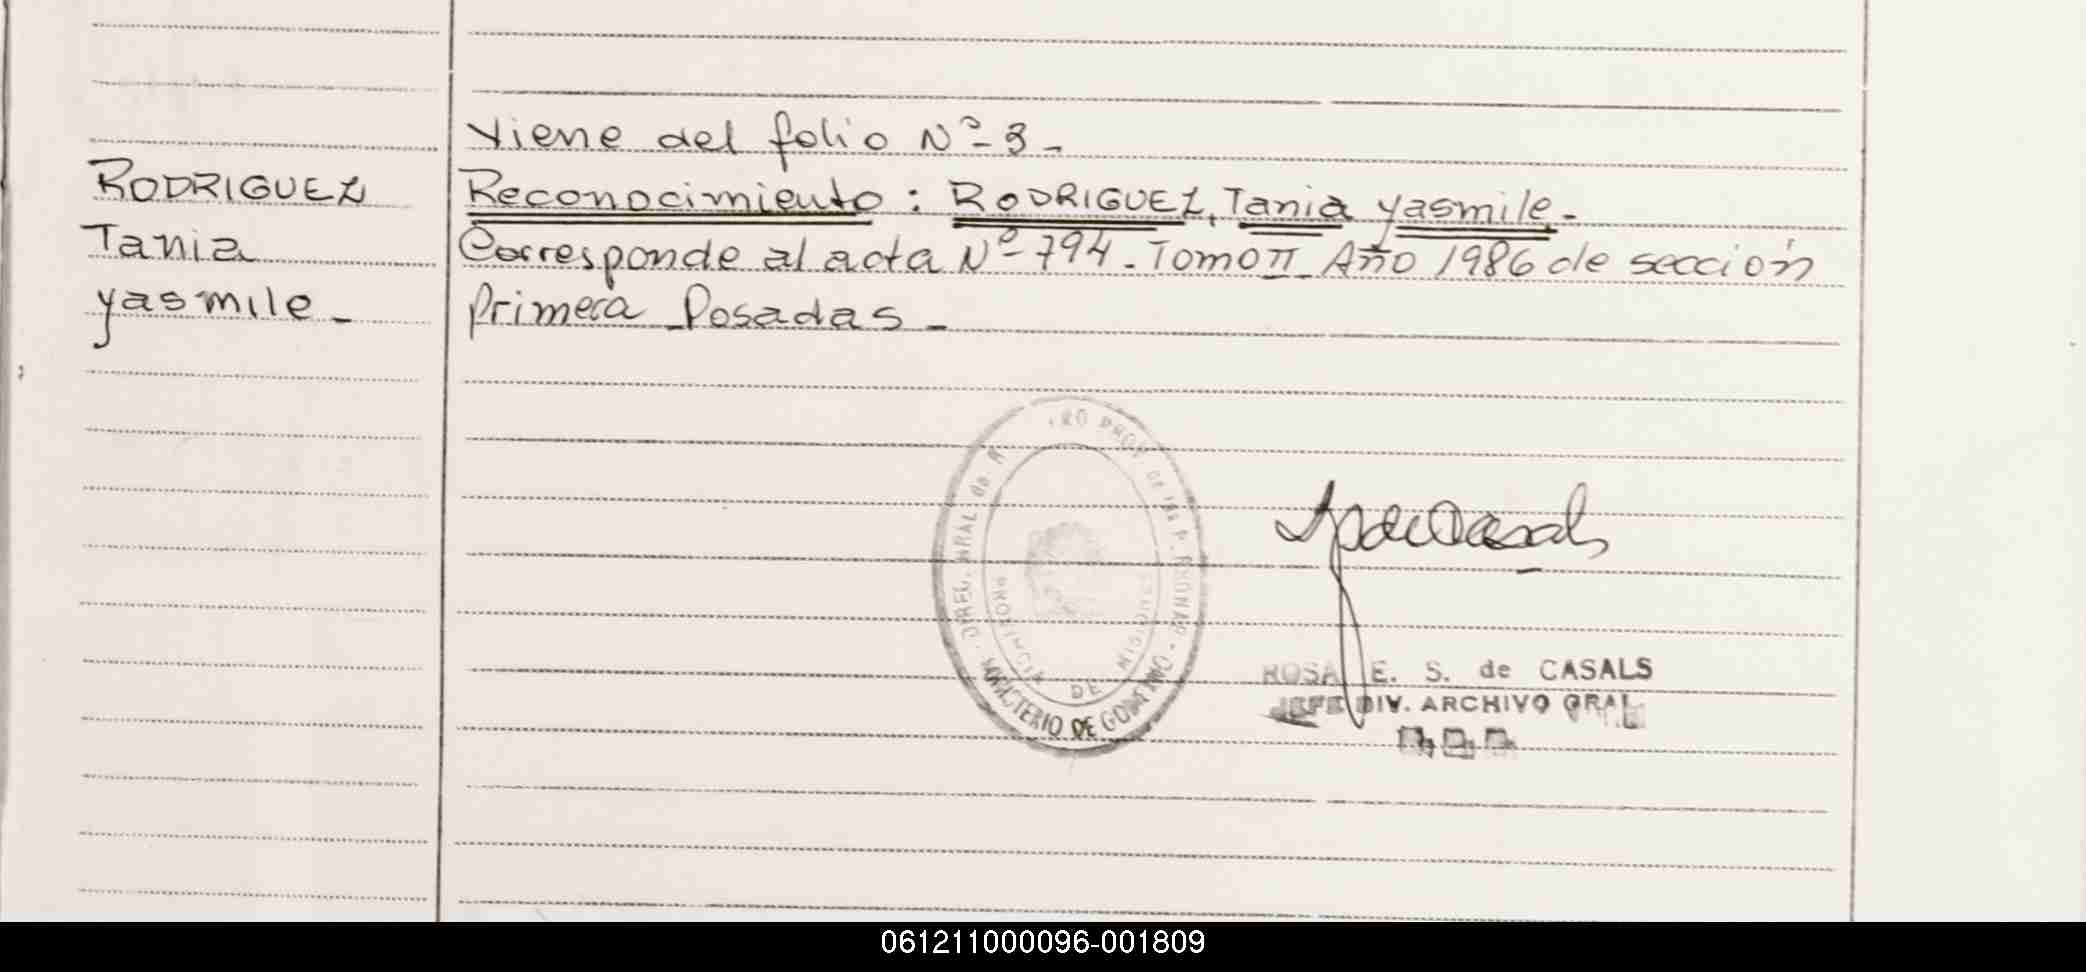 Viene del folio Nº- 3 -
RODRIGUEZ
Tania
yasmile -
Reconocimiento : RODRIGUEZ, Tania yasmile -
Corresponde al acta Nº- 794 - Tomo II - Año 1986 de sección
primera - Posadas -
DIREC. GRAL de
MINISTERIO DE GOBIERNO
PROVINCIA DE MISIONES
ROSA E. S. de CASALS
JEFE DIV. ARCHIVO GRAL
061211000096-001809